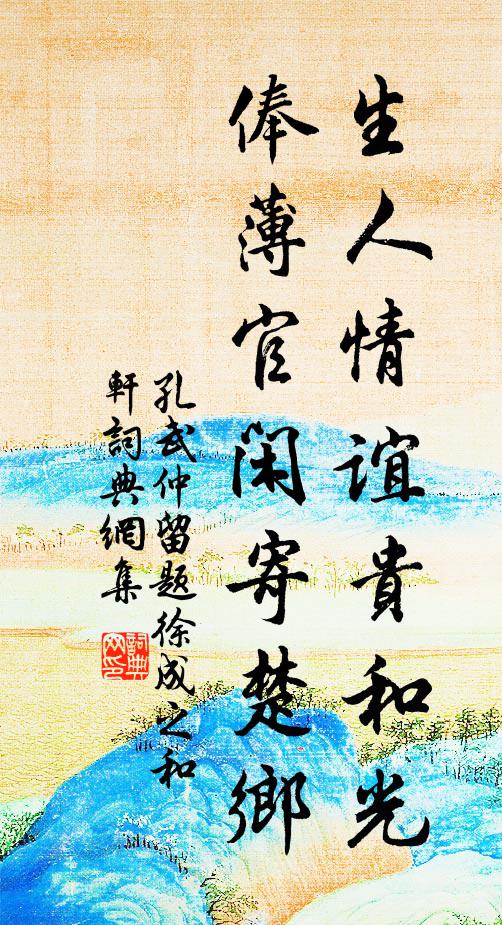 生人情誼貴和光
俸薄官閑寄楚鄉
孔武仲留題徐成之和
軒詞典網集
詞典网印